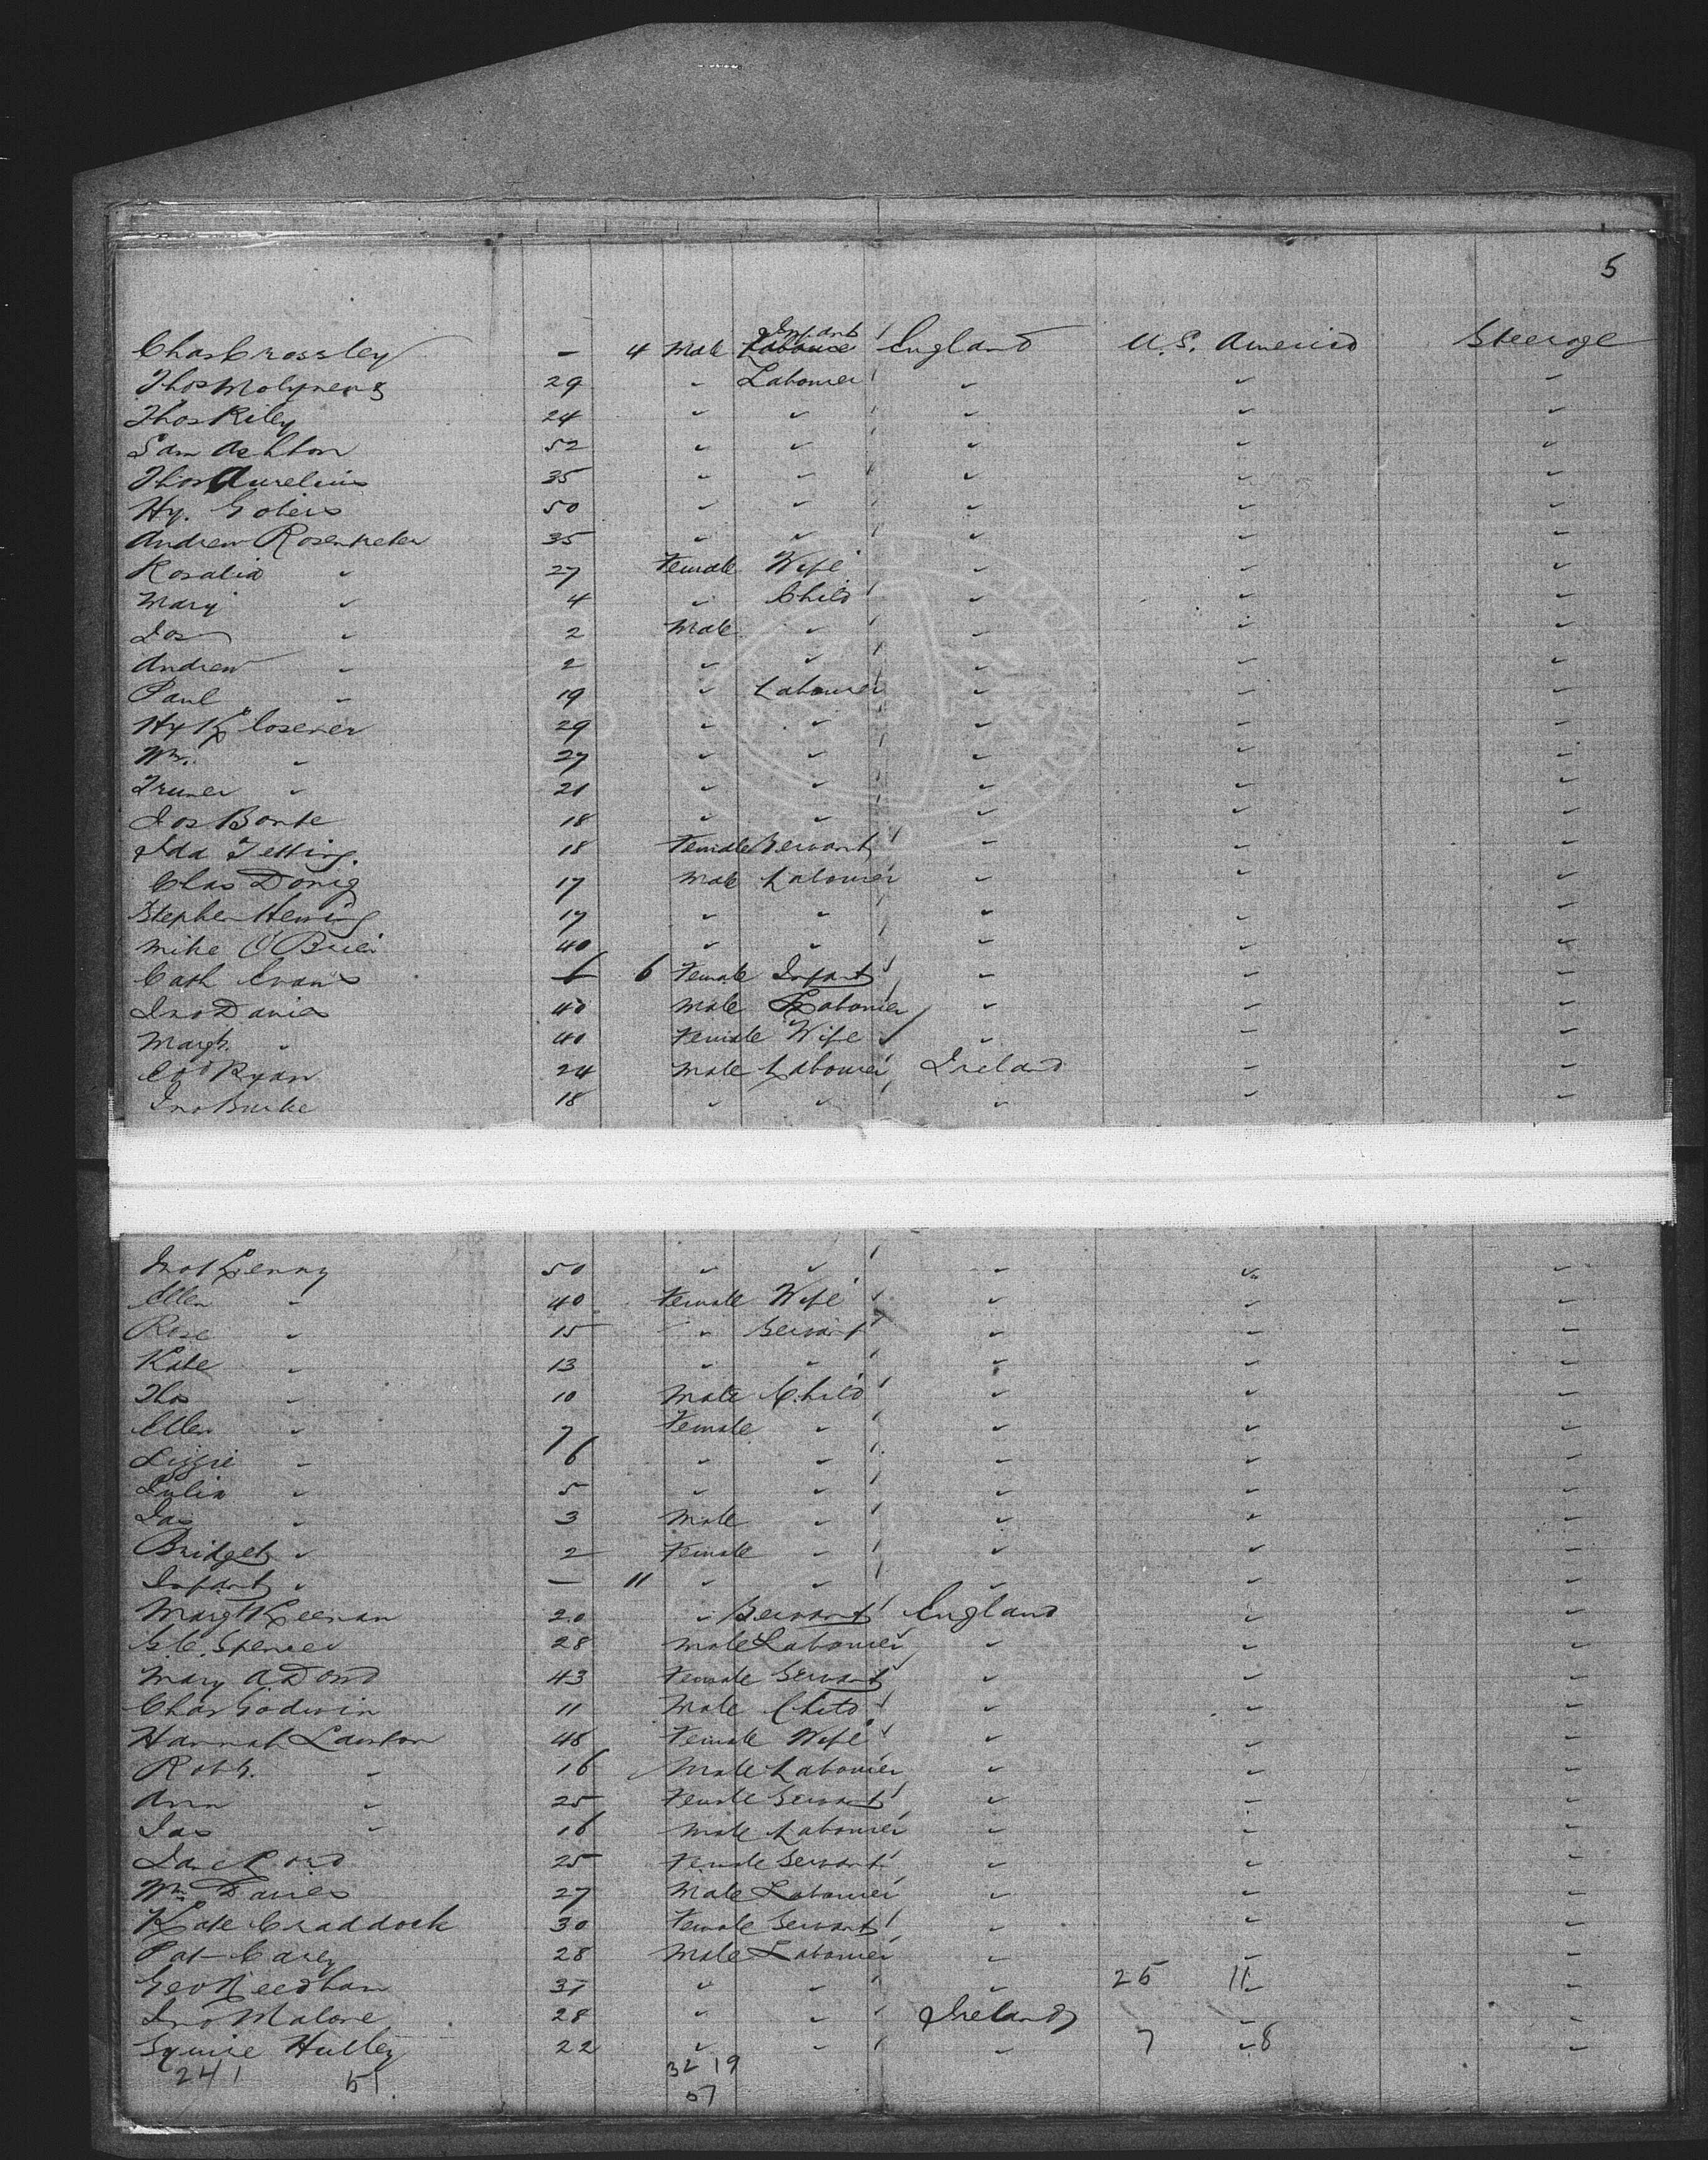 5
Infant
Chas Crossley — 4 Male Labourer England U.S. America Steerage
Thos Molyneux 29 " Labourer " " "
Thos Riley 24 " " " " "
Sam Ashton 52 " " " " "
Thos Aurelius 35 " " " " "
Hy. 50 " " " " "
Andrew 35 " " " " "
Rosalia " 27 Female Wife " " "
Mary " 4 " Child " " "
Jos " 2 Male " " " "
Andrew " 2 " " " " "
Paul " 19 " Labourer " " "
Hy 29 " " " " "
Wm. " 27 " " " " "
" 21 " " " " "
Jos Bonke 18 " " " " "
Ida Tetting. 18 Female Servant " " "
Chas Donig 17 Male Labourer " " "
Stephen Hering 17 " " " " "
Mike O'Brien 40 " " " " "
Cath Evans 6 Female Infant " " "
Jno Davies 40 Male Labourer " " "
Margt. " 40 Female Wife " " "
Ed Ryan 24 Male Labourer Ireland " "
Jno Burke 18 " " " " "
Jno Kenny 50 " " " " "
Ellen " 40 Female Wife " " "
Rose " 15 " Servant " " "
Kate " 13 " " " " "
Thos " 10 Male Child " " "
Ellen " 7 Female " " " "
Lizzie " 6 " " " " "
Julia " 5 " " " " "
Jas " 3 Male " " " "
Bridget " 2 Female " " " "
Infant " — 11 " " " " "
Margt Keenan 20 " Servant England " "
G.C. Spencer 28 Male Labourer " " "
Mary A Dowd 43 Female Servant " " "
Chas Godwin 11 Male Child " " "
Hannah Lawton 48 Female Wife " " "
Robt. " 16 Male Labourer " " "
Ann " 25 Female Servant " " "
Jas " 16 Male Labourer " " "
Jane 25 Female Servant " " "
Wm Davies 27 Male Labourer " " "
Kate Craddock 30 Female Servant " " "
Pat Carey 28 Male Labourer " " "
Geo Needham 37 " " " 25 11 "
Jno Malone 28 " " Ireland " "
Squire Hulley 22 " " " 7 8 "
241 51. 32 19
57